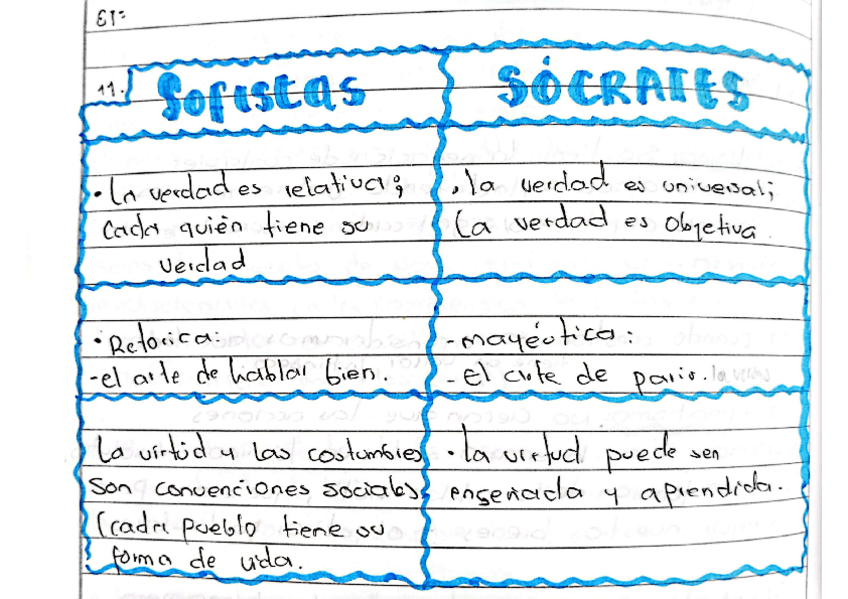 11.
Sofistas
SÓCRATES
• La verdad es relativa;
cada quién tiene su
verdad
. la verdad es universal;
La verdad es Objetiva.
• Retorica:
- el arte de hablar bien.
- mayéutica:
- El arte de parir.
La virtud y las costumbres
son convenciones sociales.
(cada pueblo tiene su
forma de vida.
• la virtud puede sen
enseñada y aprendida.